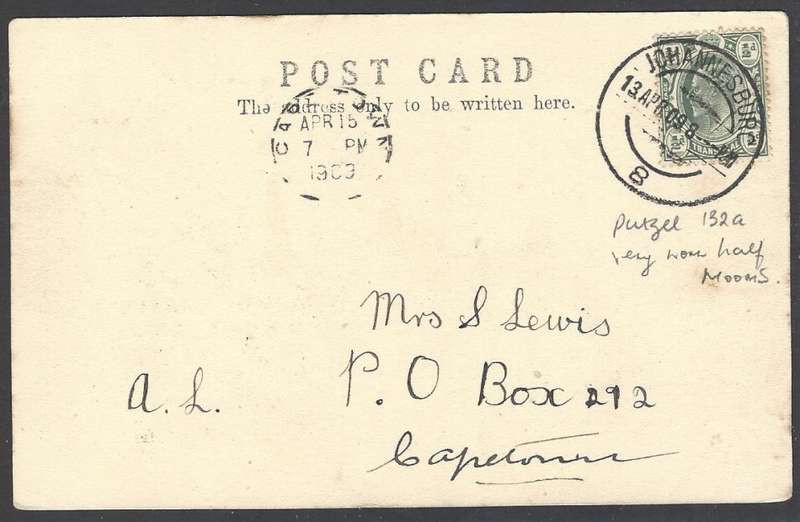 POST CARD
The address only to be written here.
CAPE TOWN
APR 15
7 PM
1909
JOHANNESBURG
13 APR 09 8
8
½d
½d
TRANSVAAL
Putzel 132a
very worn half
moons.
Mrs S Lewis
A. L.
P. O Box 292
Capetown